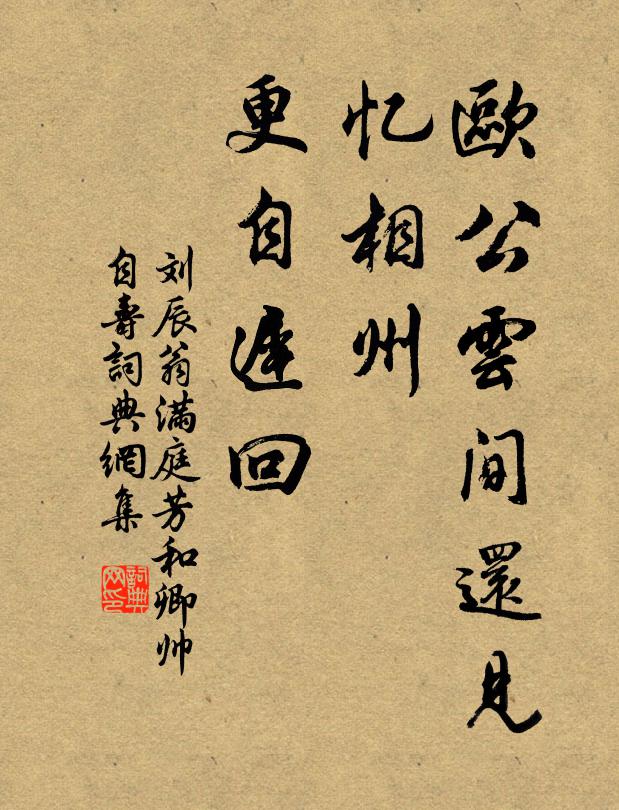 歐公雲間還見
忆相州
更自遲回
刘辰翁满庭芳和卿帅
自壽詞典網集
詞典
网印